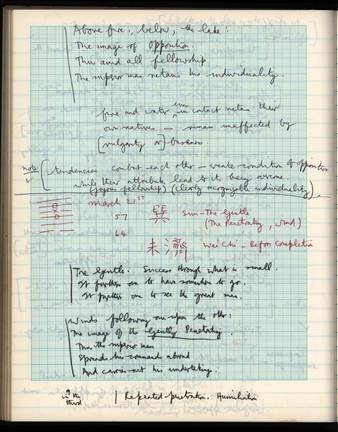 Above fire; below, the lake:
The image of Opposition.
Thus amid all fellowship
The superior man retains his individuality.
fire and water even in contact retain their
own natures — man unaffected by
[vulgarity or] baseness.
Note
tendencies combat each other — create condition of opposition
while their attributes lead to it being overcome.
(proper fellowship) (clearly recognizable individuality).
March 21st
57 巽 Sun - The Gentle
(The Penetrating, Wind)
64
未濟 Wei Chi - Before Completion
The Gentle. Success through what is small.
It furthers one to have somewhere to go.
It furthers one to see the great man.
Winds following one upon the other:
The image of the Gently Penetrating
Thus the superior man
Spreads his commands abroad
And carries out his undertakings.
in the
third
Repeated penetration. Humiliation